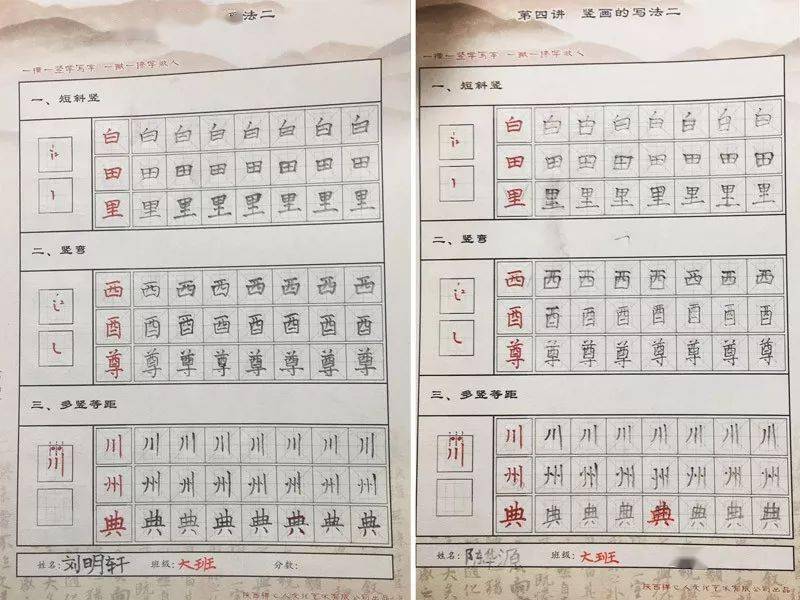 法二
一横一竖学写字 一撇一捺学做人
一、短斜竖
白 白 白 白 白 白 白 白
田 田 田 田 田 田 田 田
里 里 里 里 里 里 里 里
二、竖弯
西 西 西 西 西 西 西 西
酉 酉 酉 酉 酉 酉 酉 酉
尊 尊 尊 尊 尊 尊 尊 尊
三、多竖等距
川 川 川 川 川 川 川 川
川
州 州 州 州 州 州 州 州
典 典 典 典 典 典 典 典
姓名: 刘明轩 班级: 大班 分数:
文化艺术有限公司出品
第四讲 竖画的写法二
一横一竖学写字 一撇一捺学做人
一、短斜竖
白 白 白 白 白 白 白 白
田 田 田 田 田 田 田 田
里 里 里 里 里 里 里 里
二、竖弯
西 西 西 西 西 西 西 西
酉 酉 酉 酉 酉 酉 酉 酉
尊 尊 尊 尊 尊 尊 尊 尊
三、多竖等距
川 川 川 川 川 川 川 川
川
州 州 州 州 州 州 州 州
典 典 典 典 典 典 典 典
姓名: 陈华源 班级: 大班
文化艺术有限公司出品